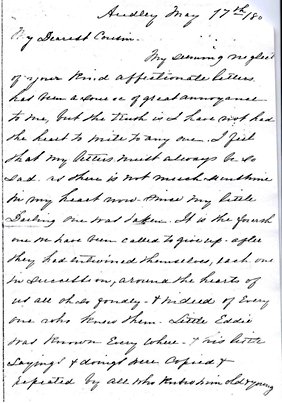 Audley May 17th/80
My Dearest Cousin
My seeming neglect
of your kind affectionate letters
has been a source of great annoyance
to me, but the truth is I have not had
the heart to write to any one. I feel
that my letters must always be so
sad as there is not much sunshine
in my heart now since my little
Darling one was taken. It is the fourth
one we have been called to give up after
they had entwined themselves, each one
in succession, around the hearts of
us all oh so fondly & indeed of every
one who knew them. Little Eddie
was known Every where & his little
sayings & doings were copied &
repeated by all who knew him old & young